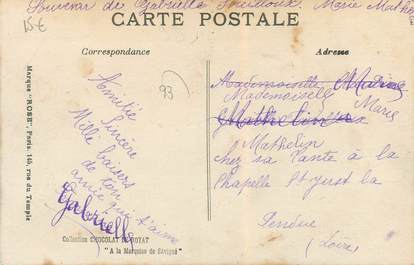 Souvenir de Gabrielle Marie Mathe
CARTE POSTALE
15€
Correspondance
Adresse
93
Amitié Sincère
Mille baisers
de ton
amie qui t'aime
Gabrielle
Mademoiselle
Mademoiselle
Marie
Mathelin
chez sa Tante à la
Chapelle St Just la
Pendue
(Loire)
Marque "ROSE", Paris. 145, rue du Temple
Collection CHOCOLAT DE ROYAT
"A la Marquise de Sévigné"